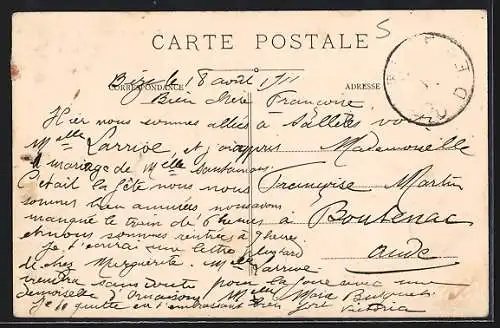 CARTE POSTALE
5
Bize le 18 août 1911
CORRESPONDANCE
ADRESSE
Bien chère Françoise
Hier nous sommes allées à Sallèles voir
Melle Larrive, et j'ai appris
le mariage de Melle
C'était la fête nous nous
sommes bien amusées nous avons
manqué le train de 6 heures
et nous sommes rentrées à 9 heures
Je t'écrirai une lettre plus tard
de chez Marguerite. Melle Larrive
viendra sans doute pour la foire avec une
demoiselle d'Ornaisons Melle Marie
Je te quitte en t'embrassant bien fort
Victoria
Mademoiselle
Françoise Martin
à Boutenac
Aude